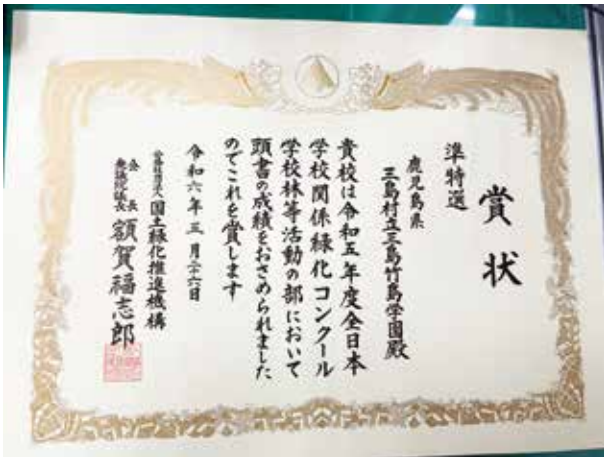 賞状
準特選
鹿児島県
三島村立三島竹島学園殿
貴校は令和五年度全日本
学校関係緑化コンクール
学校林等活動の部において
頭書の成績をおさめられました
のでこれを賞します
令和六年三月二六日
公益社団法人国土緑化推進機構
会長
衆議院議長 額賀福志郎